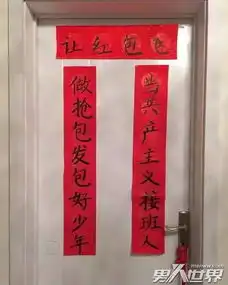 让红包飞
当共产主义接班人
做抢包发包好少年
男人世界